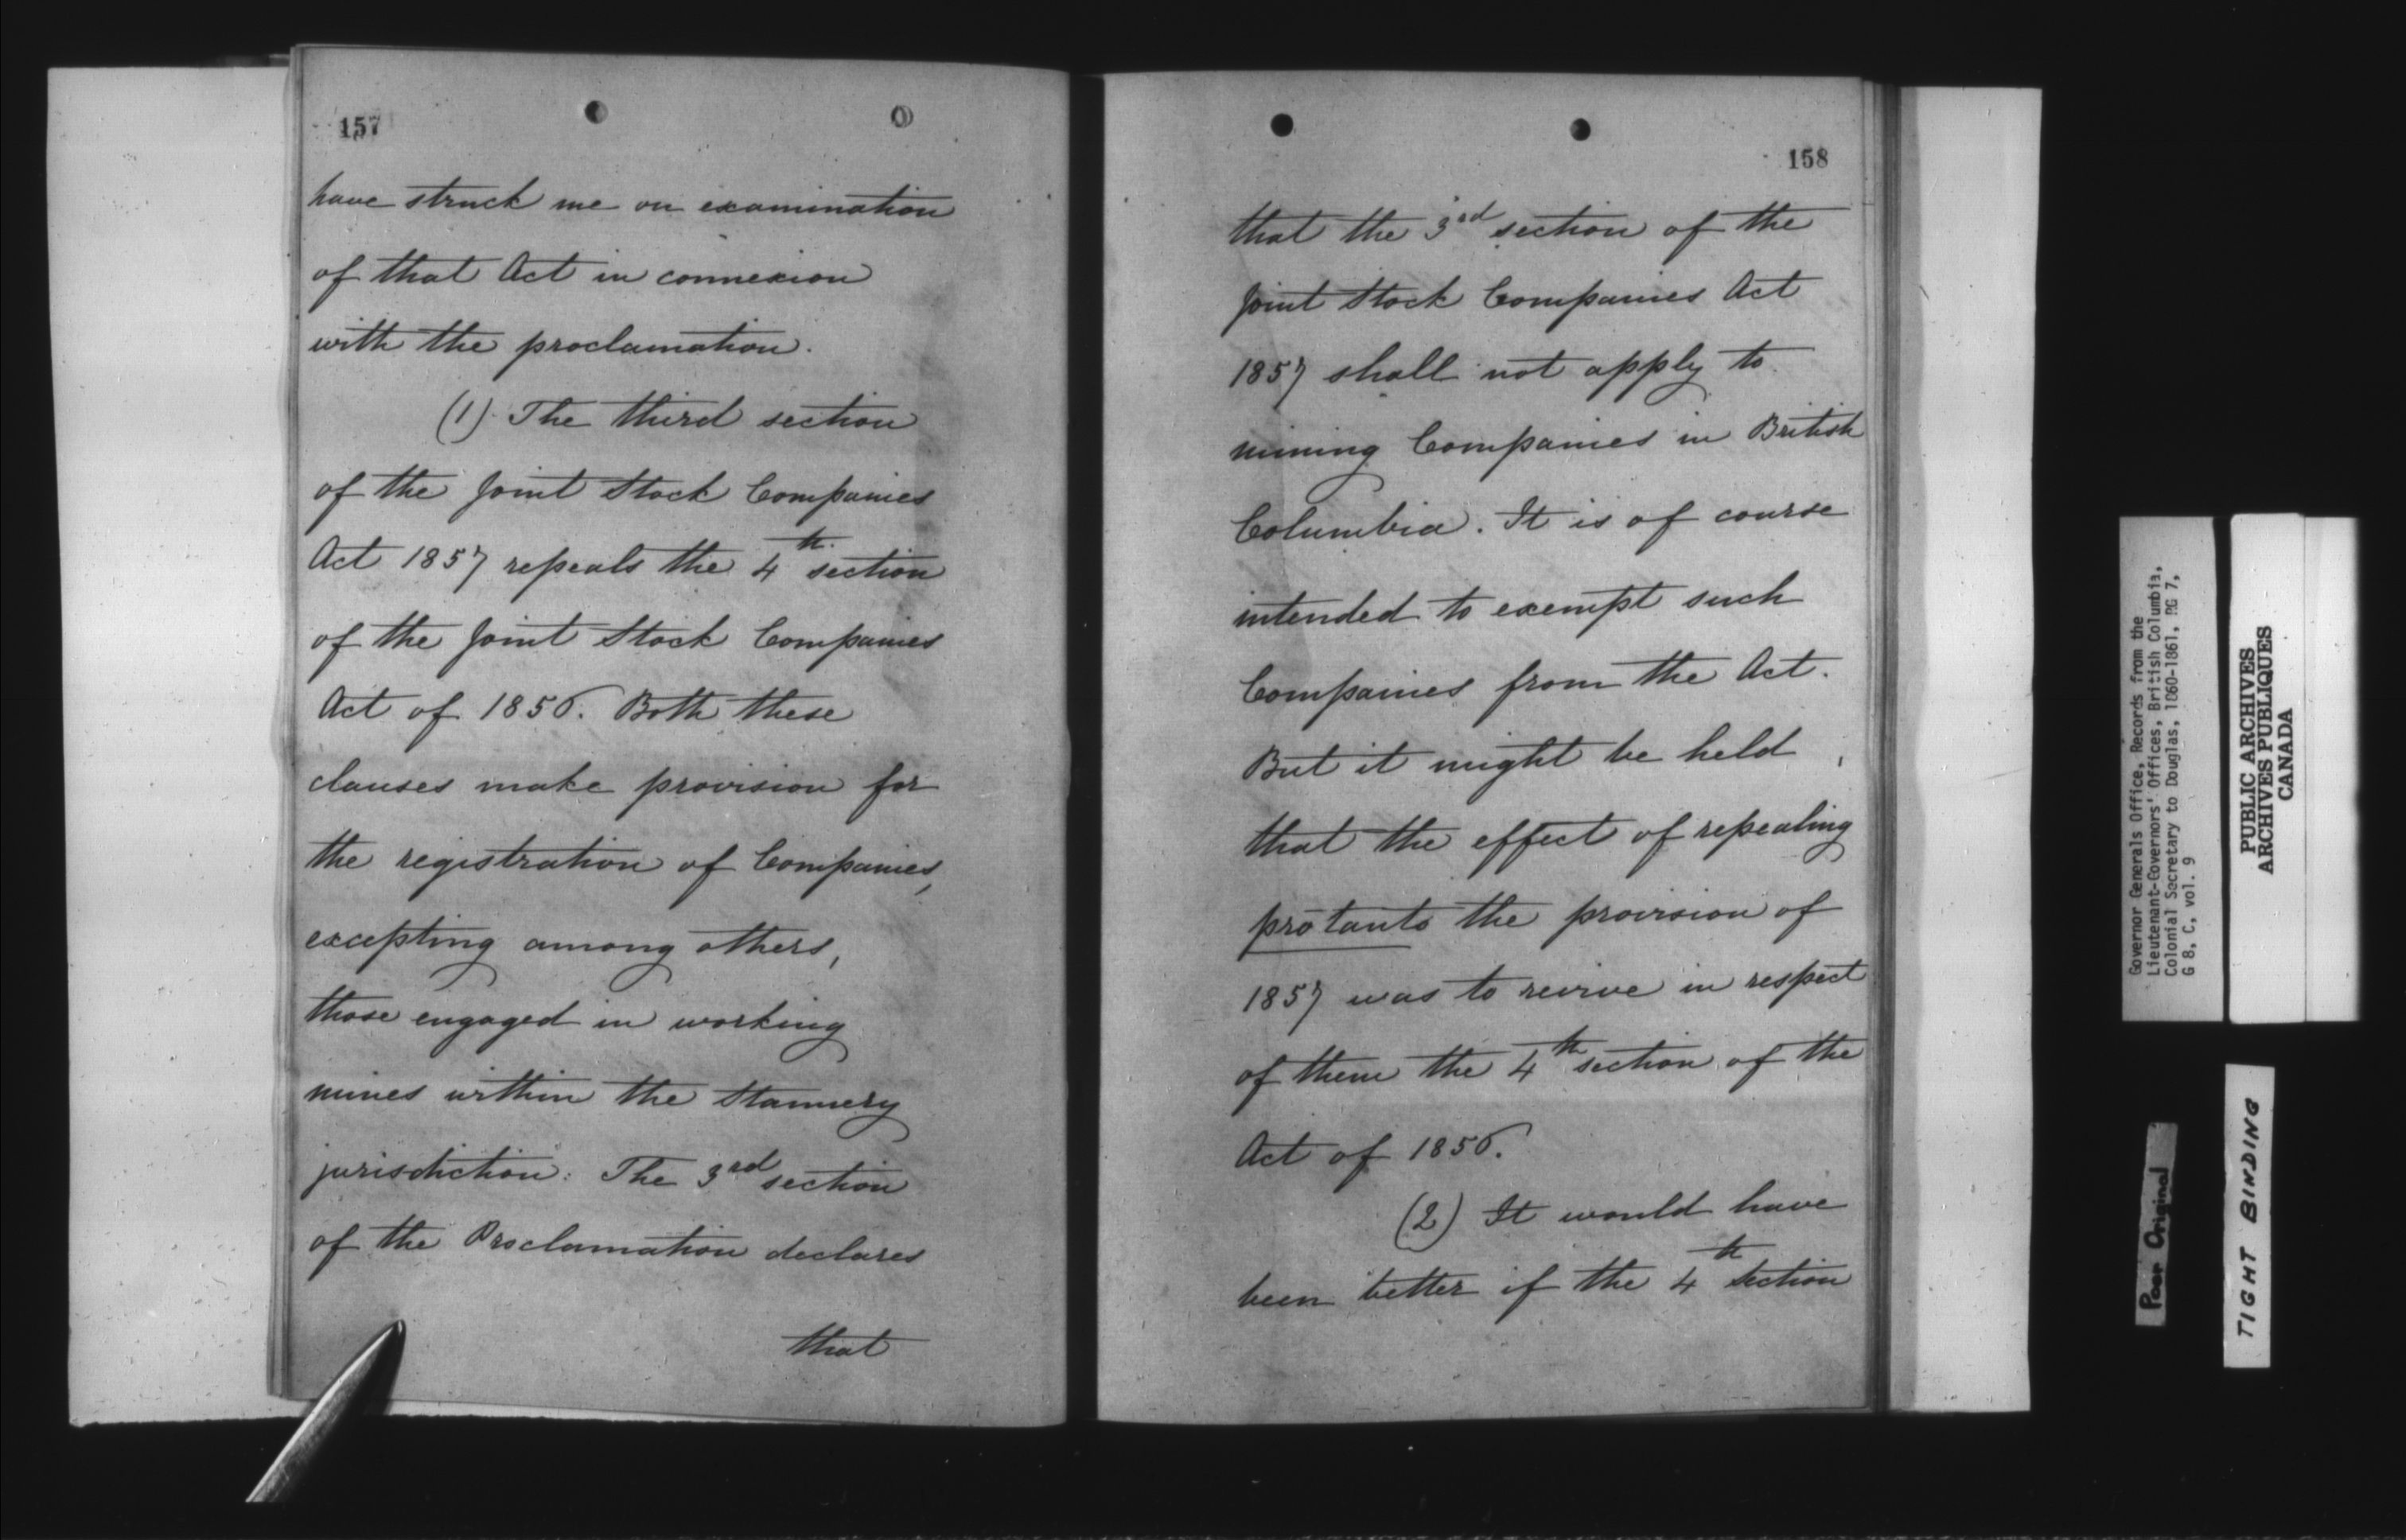 157
have struck me on examination
of that Act in connexion
with the proclamation.
(1) The third section
of the Joint Stock Companies
Act 1857 repeals the 4th section
of the Joint Stock Companies
Act of 1856. Both these
clauses make provision for
the registration of Companies,
excepting among others,
those engaged in working
mines within the Stannery
jurisdiction: The 3rd section
of the Proclamation declares
that
158
that the 3rd section of the
Joint Stock Companies Act
1857 shall not apply to
mining Companies in British
Columbia. It is of course
intended to exempt such
Companies from the Act.
But it might be held,
that the effect of repealing
pro tanto the provision of
1857 was to revive in respect
of them the 4th section of the
Act of 1856.
(2) It would have
been better if the 4th Section
Governor Generals Office, Records from the
Lieutenant-Governors' Offices, British Columbia,
Colonial Secretary to Douglas, 1860-1861, RG 7,
G 8, C, vol. 9
PUBLIC ARCHIVES
ARCHIVES PUBLIQUES
CANADA
Poor Original
TIGHT BINDING